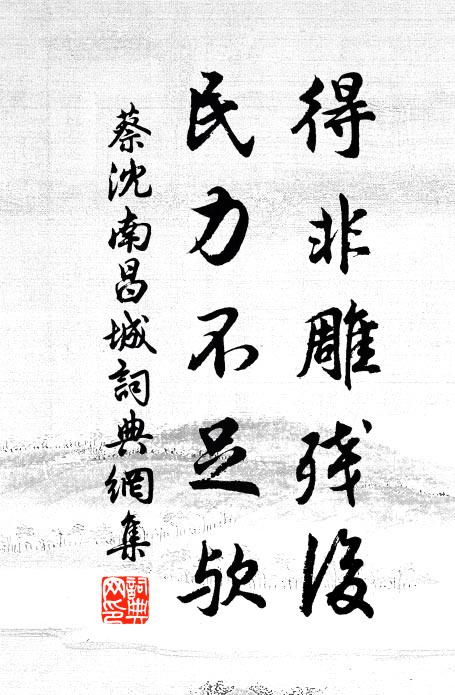 得非雕残後
民力不足欤
蔡沈南昌城詞典網集
詞典网印